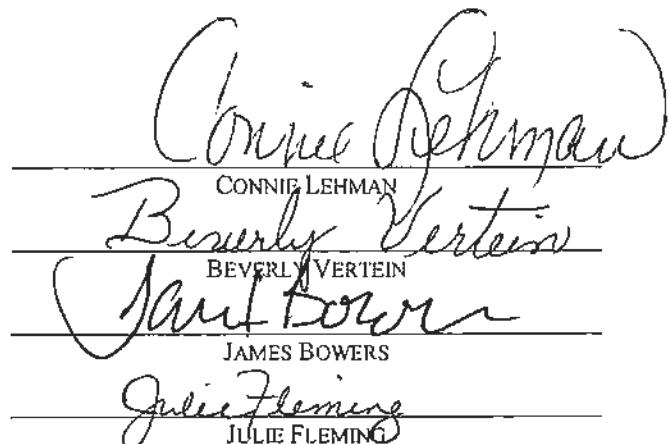 Connie Lehman
CONNIE LEHMAN
Beverly Vertein
BEVERLY VERTEIN
Bowers
JAMES BOWERS
Julie Fleming
JULIE FLEMING